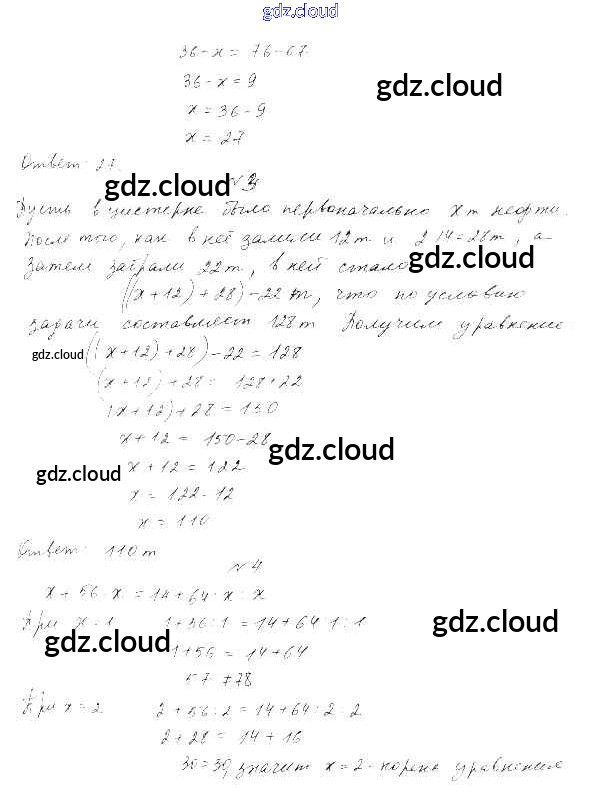 gdz.cloud
36 - x = 76 - 67
36 - x = 9
gdz.cloud
x = 36 - 9
x = 27
Ответ: 27.
gdz.cloud
№3
Пусть в цистерне было первоначально x т нефти.
После того, как в неё залили 12 т и 2·14=28 т, а
затем забрали 22 т, в ней стало
gdz.cloud
((x+12)+28)-22 т, что по условию
задачи составляет 128 т Получим уравнение
gdz.cloud
((x+12)+28)-22 = 128
(x+12)+28 = 128+22
(x+12)+28 = 150
x+12 = 150-28
gdz.cloud
x+12 = 122
gdz.cloud
x = 122-12
x = 110
Ответ: 110 т
№4
x + 56 : x = 14 + 64 : x : x
При x = 1 1+56:1 = 14+64:1:1
gdz.cloud
gdz.cloud
1+56 = 14+64
57 ≠ 78
При x = 2 2+56:2 = 14+64:2:2
2+28 = 14+16
30=30, значит x=2 - корень уравнения